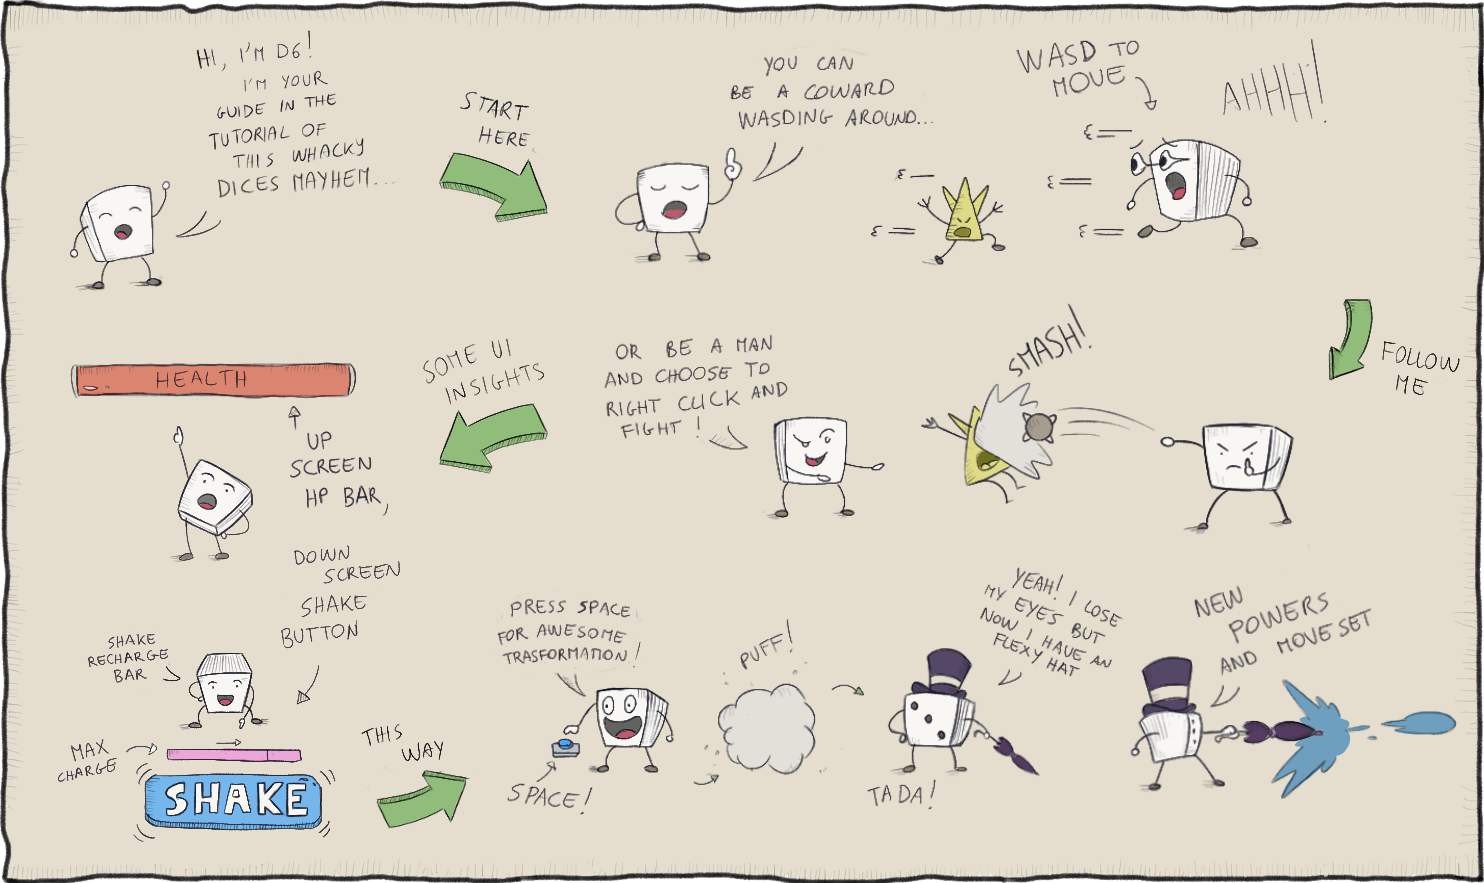 HI, I'M D6!
I'M YOUR
GUIDE IN THE
TUTORIAL OF
THIS WHACKY
DICES MAYHEM...
START
HERE
YOU CAN
BE A COWARD
WASDING AROUND...
WASD TO
MOVE
AHHH!
FOLLOW
ME
SMASH!
OR BE A MAN
AND CHOOSE TO
RIGHT CLICK AND
FIGHT!
SOME UI
INSIGHTS
HEALTH
UP
SCREEN
HP BAR,
DOWN
SCREEN
SHAKE
BUTTON
SHAKE
RECHARGE
BAR
MAX
CHARGE
SHAKE
THIS
WAY
PRESS SPACE
FOR AWESOME
TRASFORMATION!
SPACE!
PUFF!
YEAH! I LOSE
MY EYES BUT
NOW I HAVE AN
FLEXY HAT
TADA!
NEW
POWERS
AND MOVE SET